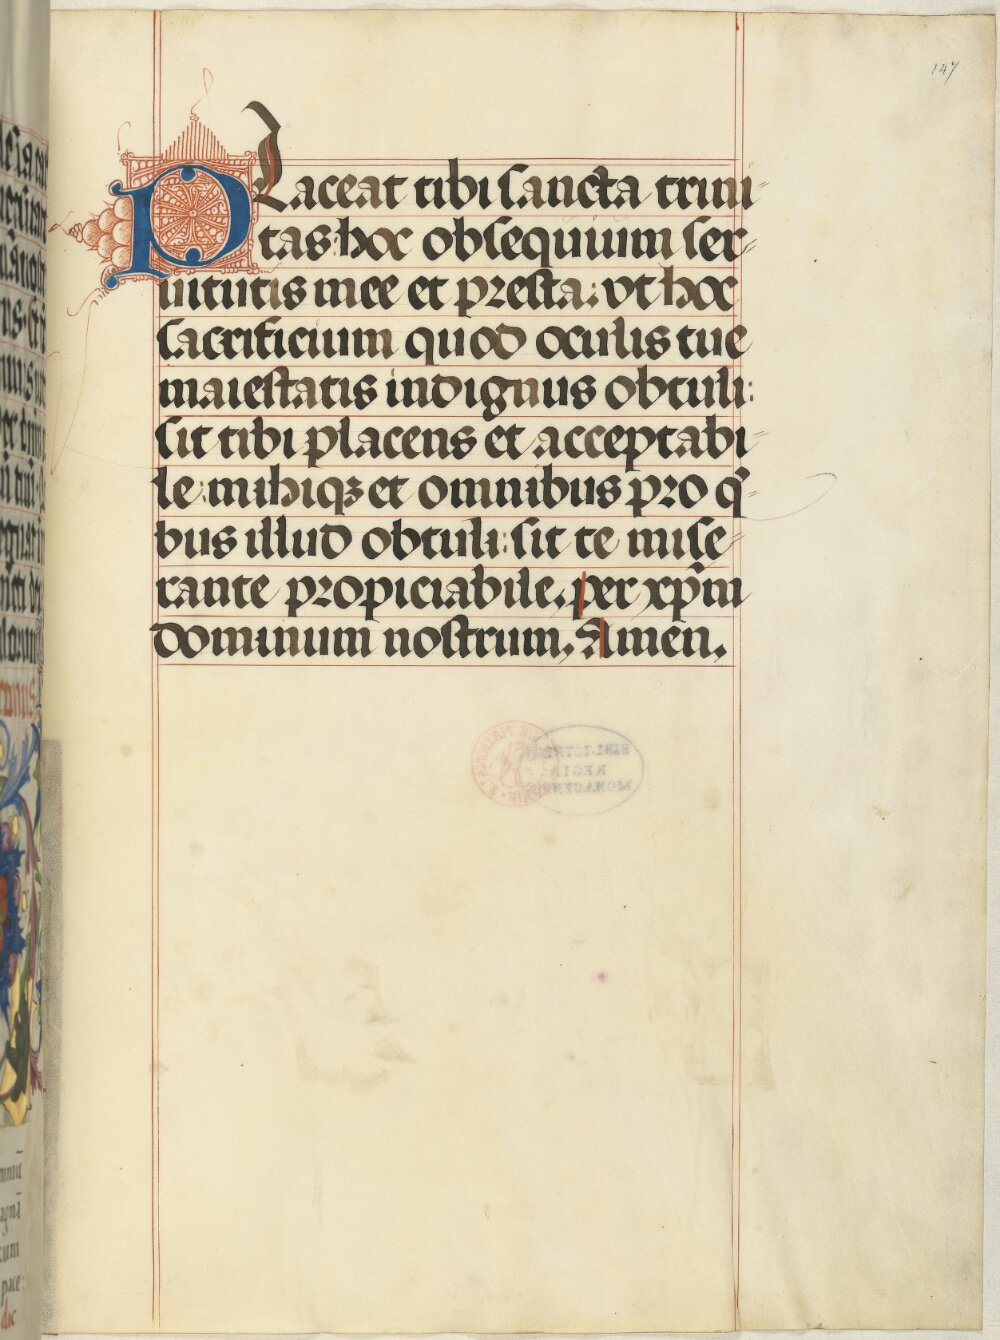 147
PLaceat tibi sancta trini⸗
tas: hoc obsequium ser⸗
uitutis mee et presta: vt hoc
sacrificium quod oculis tue
maiestatis indignus obtuli:
sit tibi placens et acceptabi⸗
le: mihiqꝫ et omnibus pro q̄⸗
bus illud obtuli: sit te mise⸗
rante propiciabile. per xp̄m
dominum nostrum. Amen.
BIBLIOTHECA
REGIA
MONACENSIS